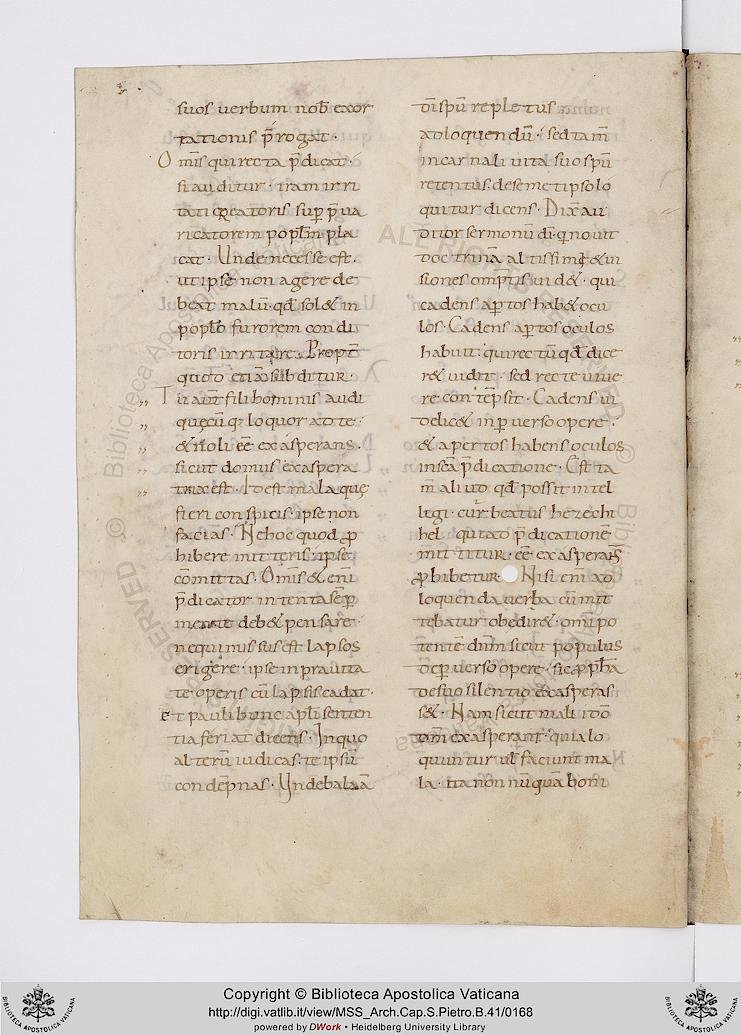 suos uerbum nob̄ exor
tationis p̄rogat ·
Om̄is qui recta p̄dicat ·
si auditur · iram irri
tati creatoris sup̄ p̄ua
ricatorem popl̄m pla
cat · Unde necesse est ·
ut ipse non agere de
beat malū · qd̄ sol& in
popl̄o furorem condi
toris irritare · Propt̄
quoto etiā subditur ·
Tu aūt fili hominis audi
quęcūq; loquor ad te ·
& noli eē exasperans ·
sicut domus exaspera
trix est · Id est mala quę
fieri conspicis · ipse non
facias · Ne hoc quod p
hibere mitteris · ipse
cōmittas · Om̄is &enī
p̄dicator intenta sēp
mente deb& pensare ·
ne qui missus est lapsos
erigere · ipse in prauita
te operis cū lapsis cadat ·
Et pauli hunc apl̄i senten
tia feriat dicens · In quo
alterū iudicas · te ipsū
condēpnas · Unde balaā
dī spū repletus
ad loquendū · sed tam̄
in carnali uita suo spū
retentus · de semetipso lo
quitur dicens · Dix̄ au
ditor sermonū dī · q nouit
doctrinā altissimi · & ui
siones omp̄tis uid& · qui
cadens ap̄tos hab& ocu
los · Cadens ap̄tos oculos
habuit · qui rectū qd̄ dice
r& uidit · sed recte uiue
re contēpsit · Cadens ui
delic& in p̄uerso opere ·
& apertos habens oculos
in sc̄a p̄dicatione · Est ta
m̄ aliud qd̄ possit intel
ligi · cur beatus hezechi
hel qui ad p̄dicationē
mittitur · eē exasperans
phibetur · Nisi enī ad
loquenda uerba cū mit
tebatur obedir& · omipo
tentē dnm̄ sicut populus
de p̄uerso opere · sic pph̄a
de suo silentio exasperas
s& · Nam sicut mali idō
dm̄ exasperant · quia lo
quuntur ul̄ faciunt ma
la · ita non nūquā boni
Copyright © Biblioteca Apostolica Vaticana
http://digi.vatlib.it/view/MSS_Arch.Cap.S.Pietro.B.41/0168
powered by DWork • Heidelberg University Library